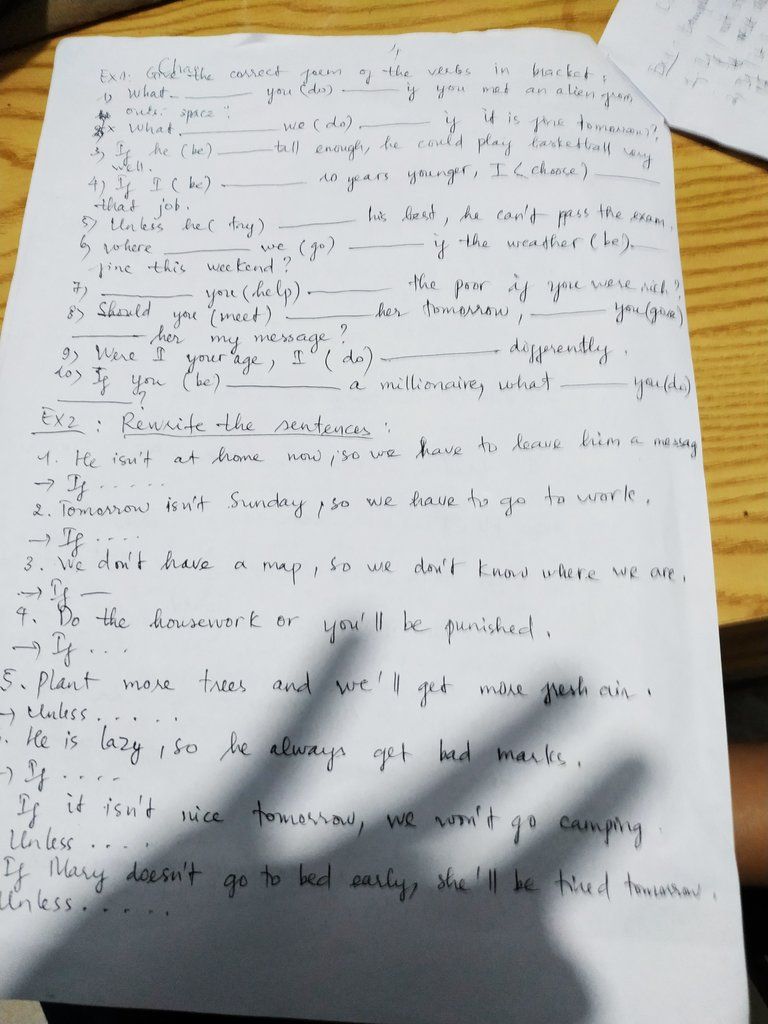 Ex1: Give the correct form of the verbs in bracket:
1) What ______ you (do) ______ if you met an alien from
outer space?
2) What ______ we (do) ______ if it is fine tomorrow?
3) If he (be) ______ tall enough, he could play basketball very
well.
4) If I (be) ______ 10 years younger, I (choose) ______
that job.
5) Unless he (try) ______ his best, he can't pass the exam.
6) Where ______ we (go) ______ if the weather (be) ___
fine this weekend?
7) ______ you (help) ______ the poor if you were rich?
8) Should you (meet) ______ her tomorrow, ______ you (give)
______ her my message?
9) Were I your age, I (do) ______ differently.
10) If you (be) ______ a millionaire, what ______ you (do)
______?
EX2: Rewrite the sentences:
1. He isn't at home now, so we have to leave him a messag
→ If .....
2. Tomorrow isn't Sunday, so we have to go to work.
→ If ....
3. We don't have a map, so we don't know where we are.
→ If —
4. Do the housework or you'll be punished.
→ If ...
5. Plant more trees and we'll get more fresh air.
→ Unless .....
He is lazy, so he always get bad marks.
→ If ....
If it isn't nice tomorrow, we won't go camping.
Unless ....
If Mary doesn't go to bed early, she'll be tired tomorrow.
Unless .....